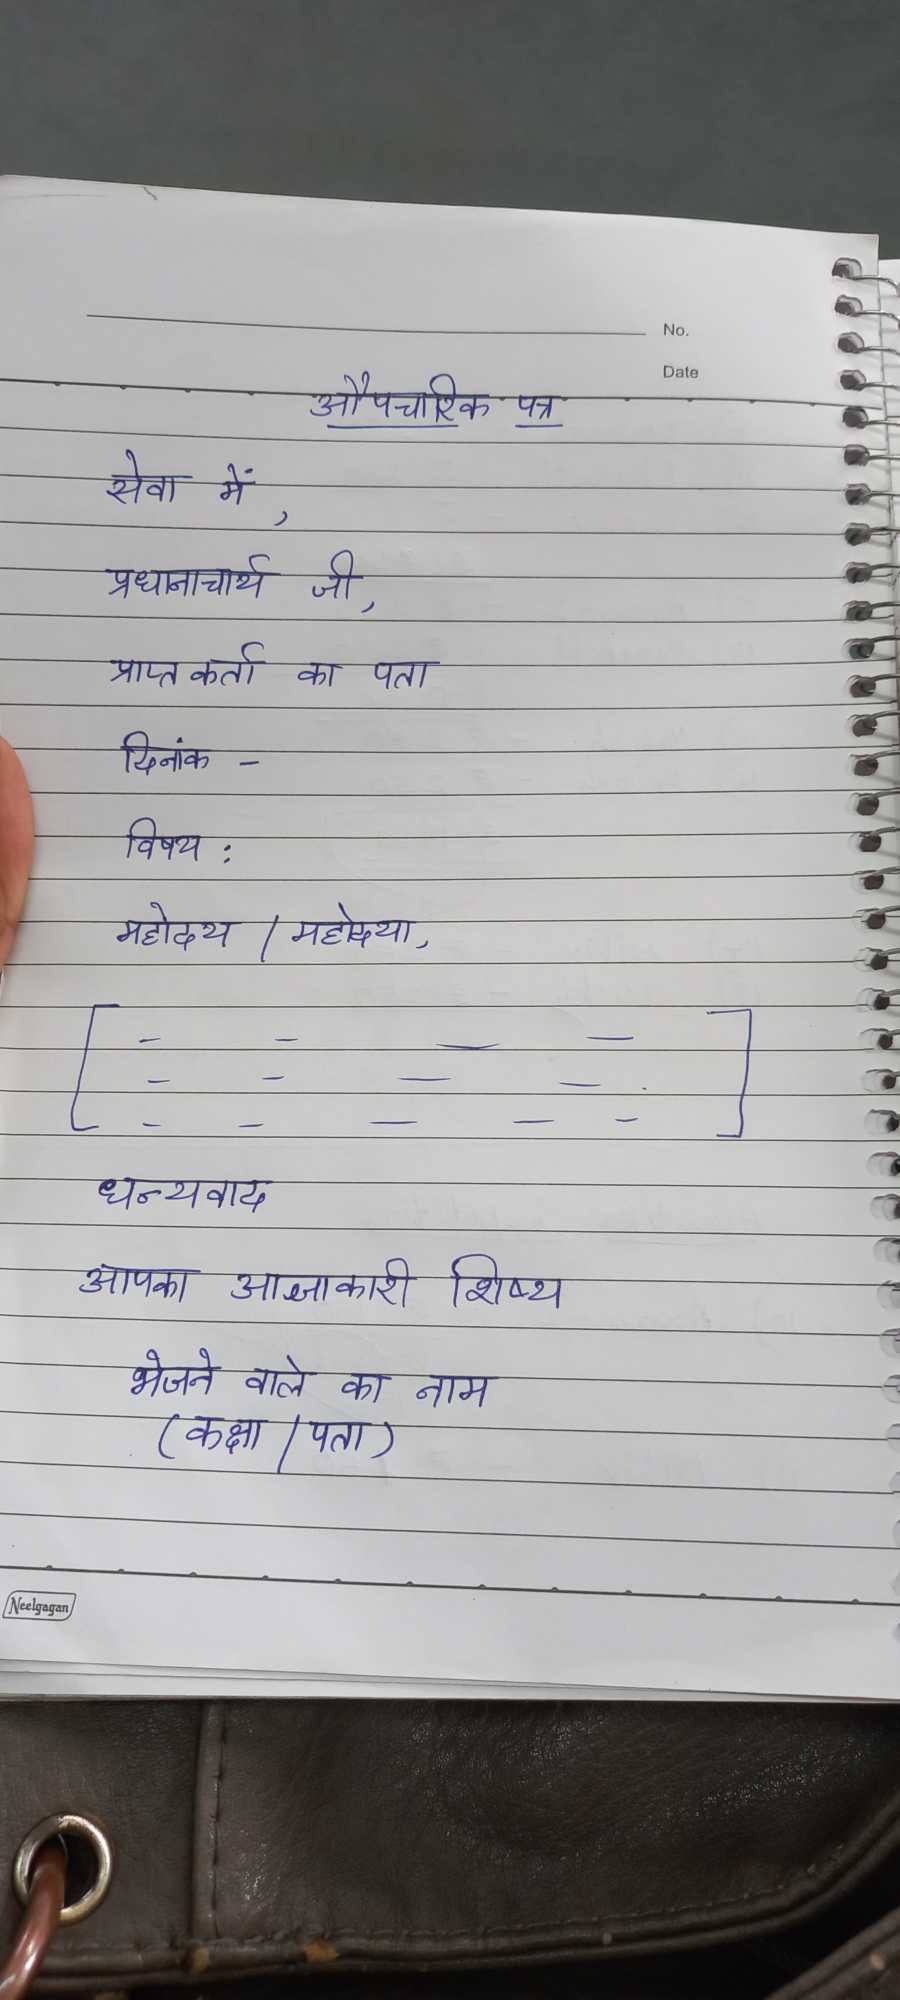 No.
Date
औपचारिक पत्र
सेवा में,
प्रधानाचार्य जी,
प्राप्तकर्ता का पता
दिनांक -
विषय :
महोदय / महोदया,
[ - - - -
- - - - .
- - - - - ]
धन्यवाद
आपका आज्ञाकारी शिष्य
भेजने वाले का नाम
(कक्षा / पता)
Neelgagan